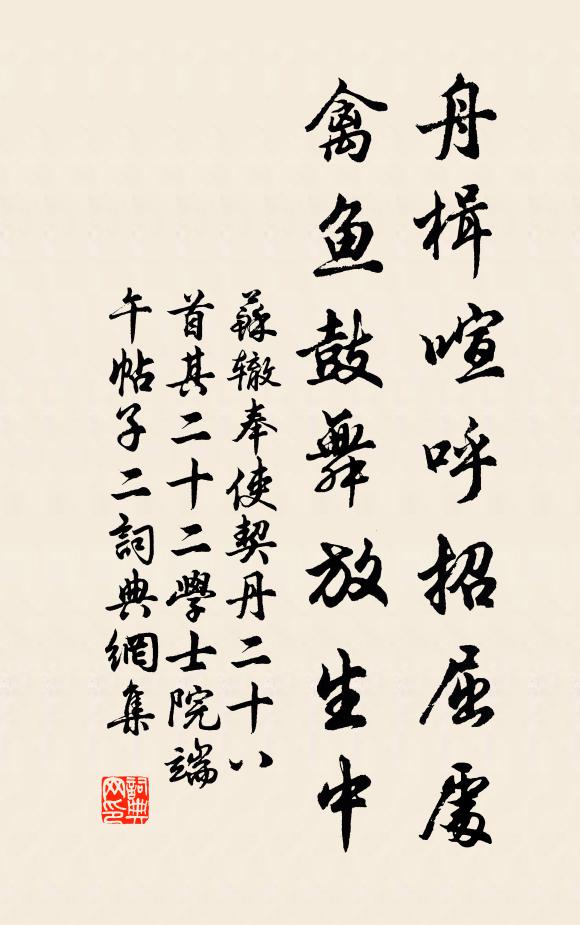 舟楫喧呼招屈處
禽魚鼓舞放生中
蘇轍奉使契丹二十八
首其二十二學士院端
午帖子二詞典網集
詞典
网印